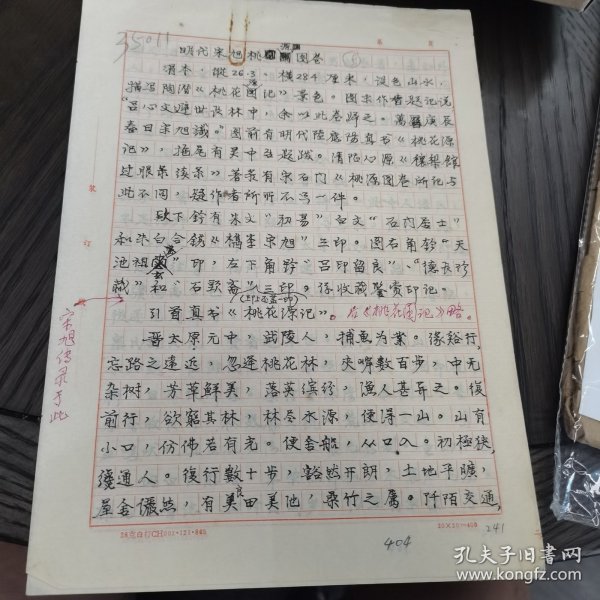 35011
明代宋旭桃源图卷
绢本,纵26.3、横284厘米,设色山水,
描写陶潜《桃花源记》景色。图末作者题记说
"吕心文遯世茂林中,余以此卷归之。万历庚辰
春日宋旭识。"图前有明代陆应阳真书《桃花源
记》,拖尾有吴中名题跋。清陆心源《穰梨馆
过眼录续录》著录有宋石门《桃源图卷所记与
此不同,疑作者所作不只一件。
款下钤有朱文"初旸"白文"石门居士"
和朱白合镌《檇李宋旭》三印。图右角钤"天
池祖
印,左下角钤"吕印留良"、"德良珍
藏"和"石野斋"三印。係收藏鉴赏印记。
引首真书《桃花源记》。
后《桃花园记》略。
晋太原元中,武陵人,捕鱼为业。缘谿行,
忘路之遠近,忽逢桃花林,夾岸数百步,中无
杂树,芳草鲜美,落英缤纷,渔人甚异之。復
前行,欲窮其林,林尽水源,便得一山。山有
小口,仿佛若有光。便舍船,从口入。初極狭,
纔通人。復行数十步,豁然开朗,土地平曠,
屋舍儼然,有良田美池,桑竹之属。阡陌交通,
宋旭传录于此
装
订
20×20=400
241
404
孔夫子旧书网
www.kongfz.com